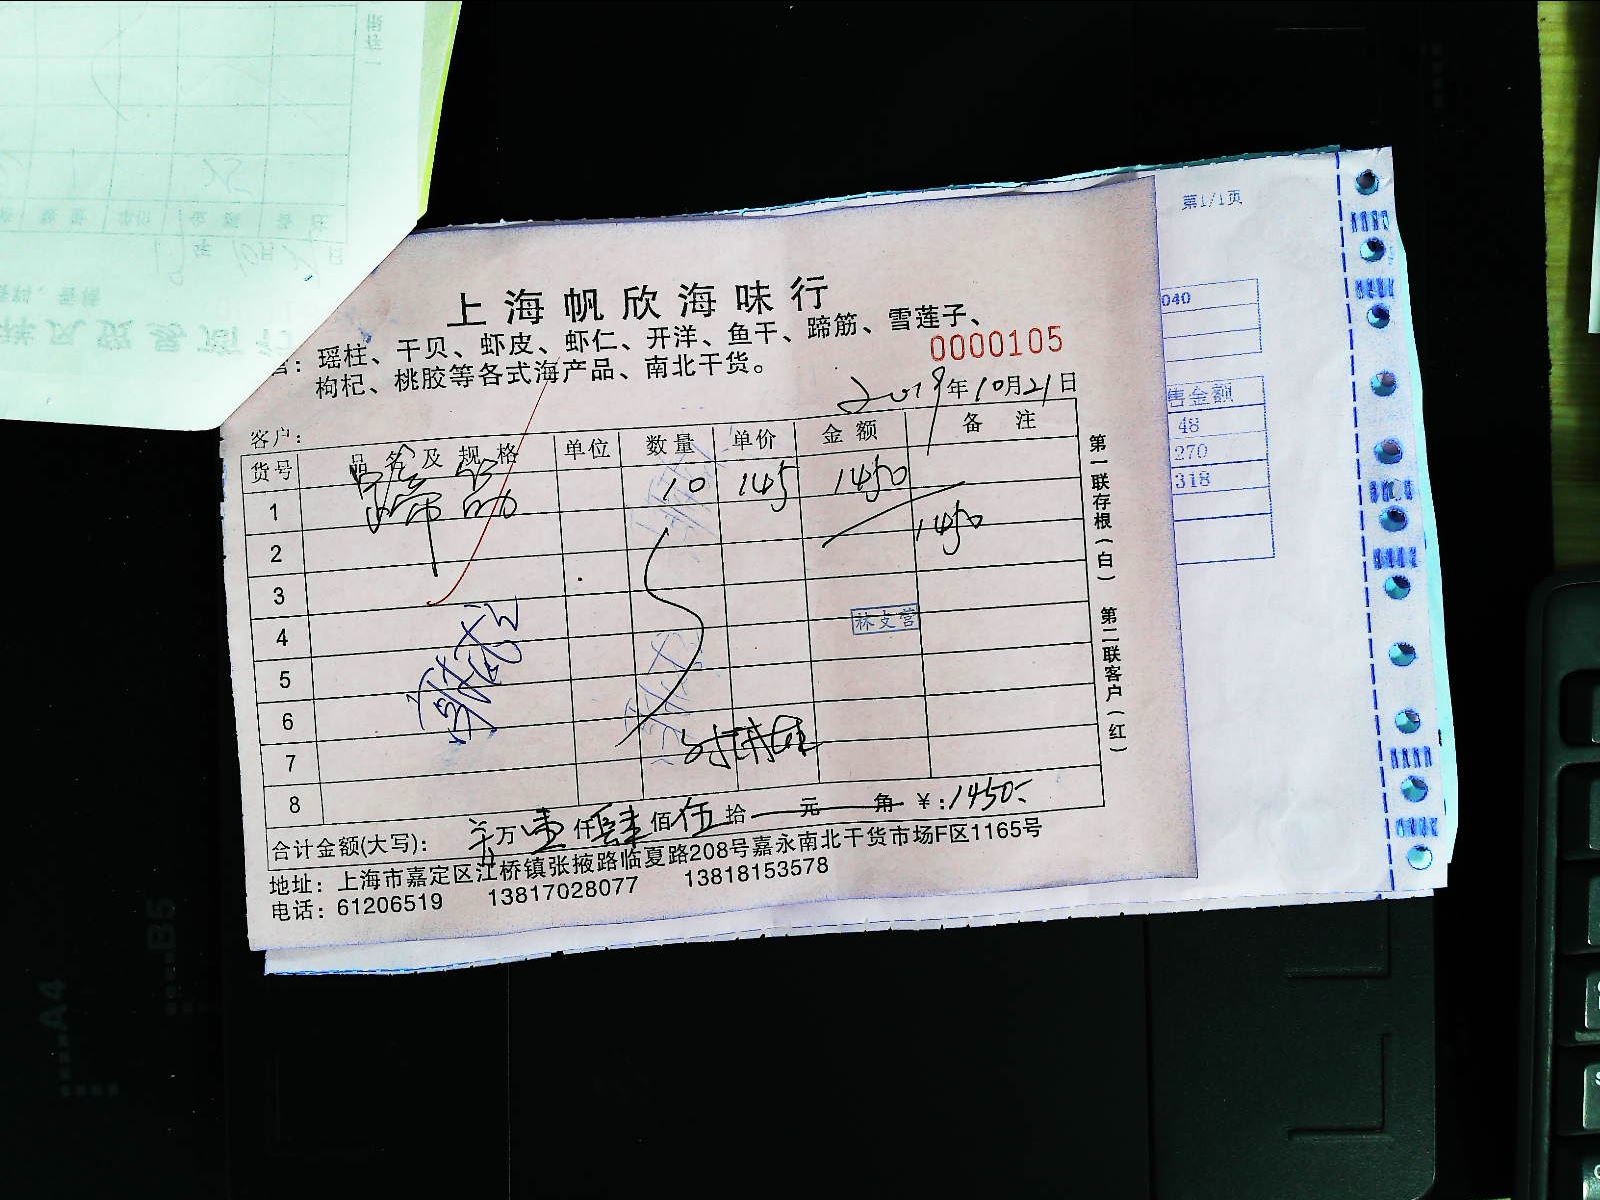 上海帆欣海味行
营：瑶柱、干贝、虾皮、虾仁、开洋、鱼干、蹄筋、雪莲子、
枸杞、桃胶等各式海产品、南北干货。
0000105
2019年10月21日
客户：
货号 品名及规格 单位 数量 单价 金额 备注
1 蹄筋 10 145 1450
1450
2
3
4
5
6
7
8
林文营
合计金额(大写)： 万壹仟肆佰伍拾 元 角 ¥:1450-
地址：上海市嘉定区江桥镇张掖路临夏路208号嘉永南北干货市场F区1165号
电话：61206519 13817028077 13818153578
第一联存根(白) 第二联客户(红)
第1/1页
040
售金额
48
270
318
A4
B5